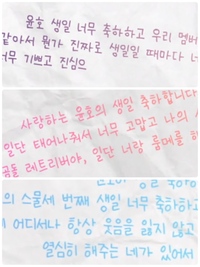 윤호 생일 너무 축하하고 우리 멤버
같아서 뭔가 진짜로 생일일 때마다 너
너무 기쁘고 진심으
사랑하는 윤호의 생일 축하합니다
일단 태어나줘서 너무 고맙고 나의
골든 레트리버야, 일단 너랑 룸메를 하
의 스물세 번째 생일 너무 축하하고
어디서나 항상 웃음을 잃지 않고
열심히 해주는 네가 있어서